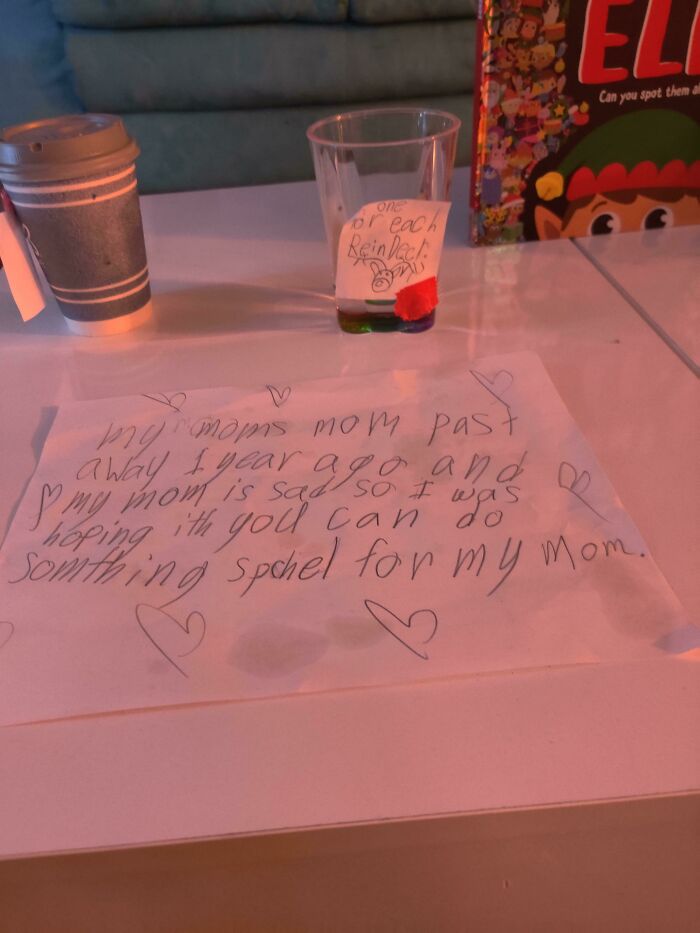 EL
Can you spot them a
one
for each
ReinDeer.
my moms mom past
away 1 year ago and
my mom is sad so I was
hoping ith you can do
somthing spchel for my mom.